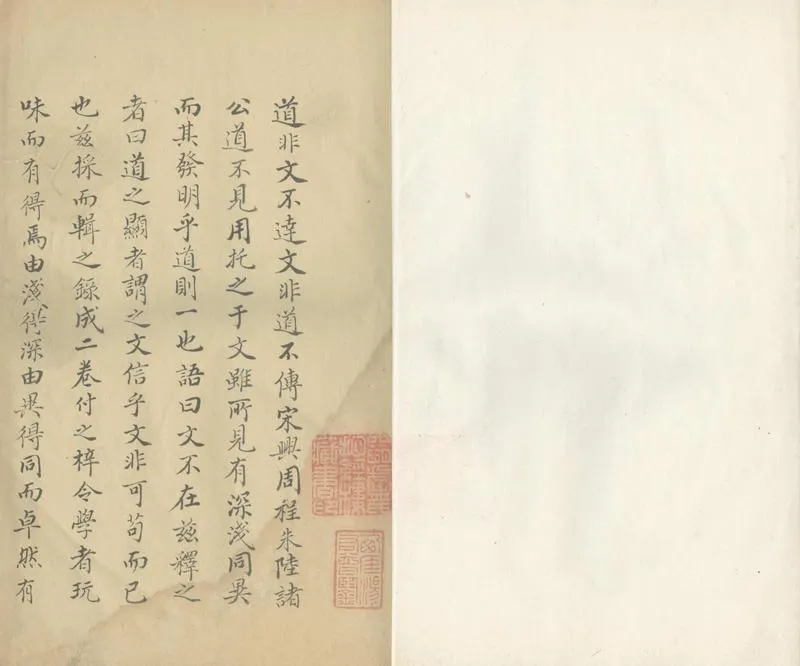 道非文不達文非道不傳宋興周程朱陸諸
公道不見用托之于文雖所見有深淺同異
而其發明乎道則一也語曰文不在茲釋之
者曰道之顯者謂之文信乎文非可苟而已
也茲採而輯之錄成二卷付之梓令學者玩
味而有得焉由淺得深由異得同而卓然有